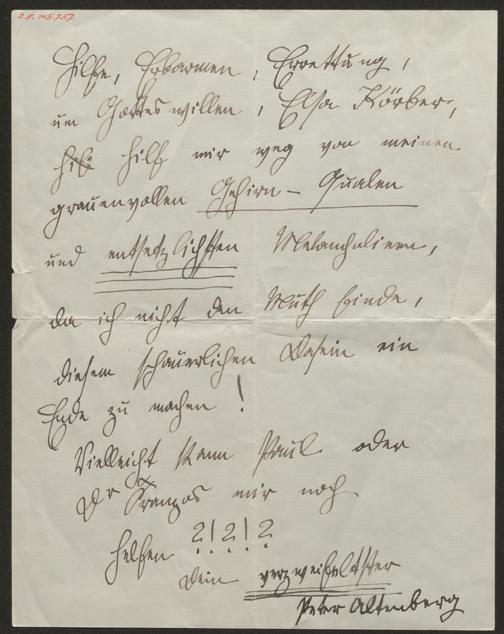 I.N. 115.757
Hilfe, Erbarmen, Errettung,
um Gottes willen, Elsa Körber,
hilf mir weg von meinen
grauenvollen Gehirn - Qualen
und entsetzlichsten Melancholieen,
da ich nicht den Muth finde,
diesem schauerlichen Dasein ein
Ende zu machen!
Vielleicht kann Paul oder
Dr Franzos mir noch
helfen ?!?!?
Dein verzweifeltster
Peter Altenberg